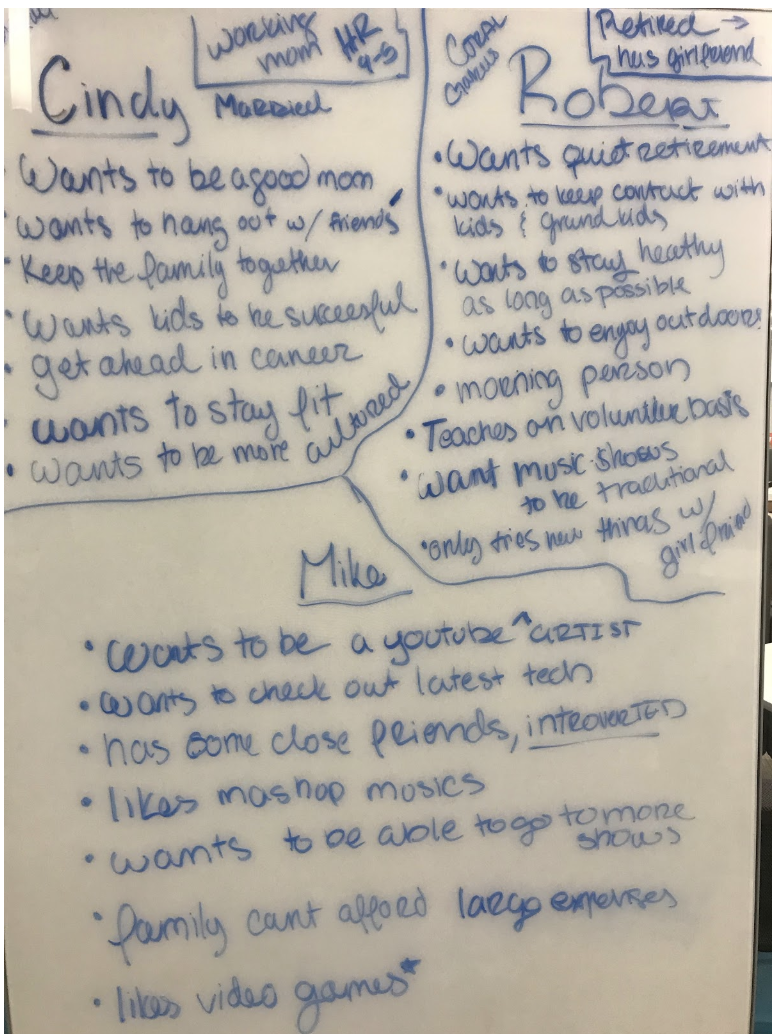 working
mom HR
9-5
Cindy
MARRIED
Wants to be a good mom
• wants to hang out w/ friends
• Keep the family together
• Wants kids to be successful
• get ahead in career
• wants to stay fit
• wants to be more cultured
CORAL
Retired →
has girlfriend
Robert
• Wants quiet retirement
• wants to keep contact with
kids & grandkids
• wants to stay healthy
as long as possible
• wants to enjoy outdoors
• morning person
• Teaches on volunteer basis
• want music shows
to be traditional
• only tries new things w/
girlfriend
Mike
• Wants to be a youtube ^ ARTIST
• wants to check out latest tech
• has some close friends, INTROVERTED
• likes mashup musics
• wants to be able to go to more
shows
• family cant afford large expenses
• likes video games*